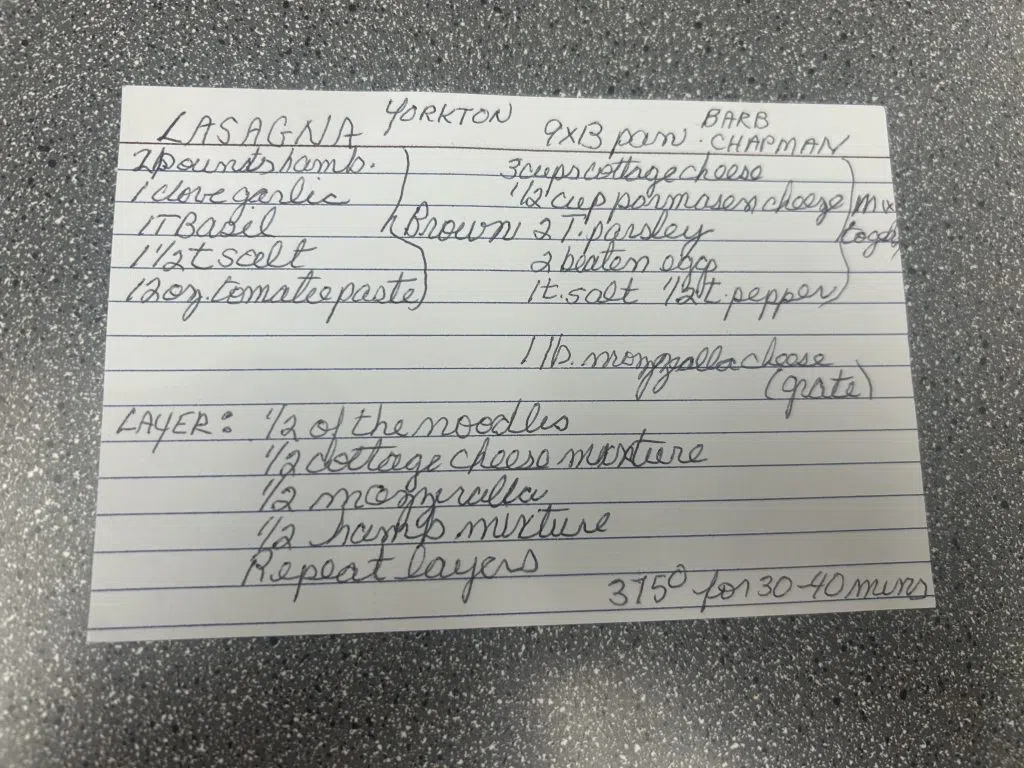 LASAGNA YORKTON 9x13 pan BARB CHAPMAN
2 pounds hamb.
1 clove garlic
1T Basil
1 1/2 t salt
12 oz. tomatoe paste
Brown
3 cups cottage cheese
1/2 cup parmasen cheese
2 T. parsley
2 beaten eggs
1 t. salt 1/2 t. pepper
Mix
1 lb. mozzzalla cheese
(grate)
LAYER: 1/2 of the noodles
1/2 cottage cheese mixture
1/2 mozzeralla
1/2 hamb mixture
Repeat layers
375° for 30-40 mins